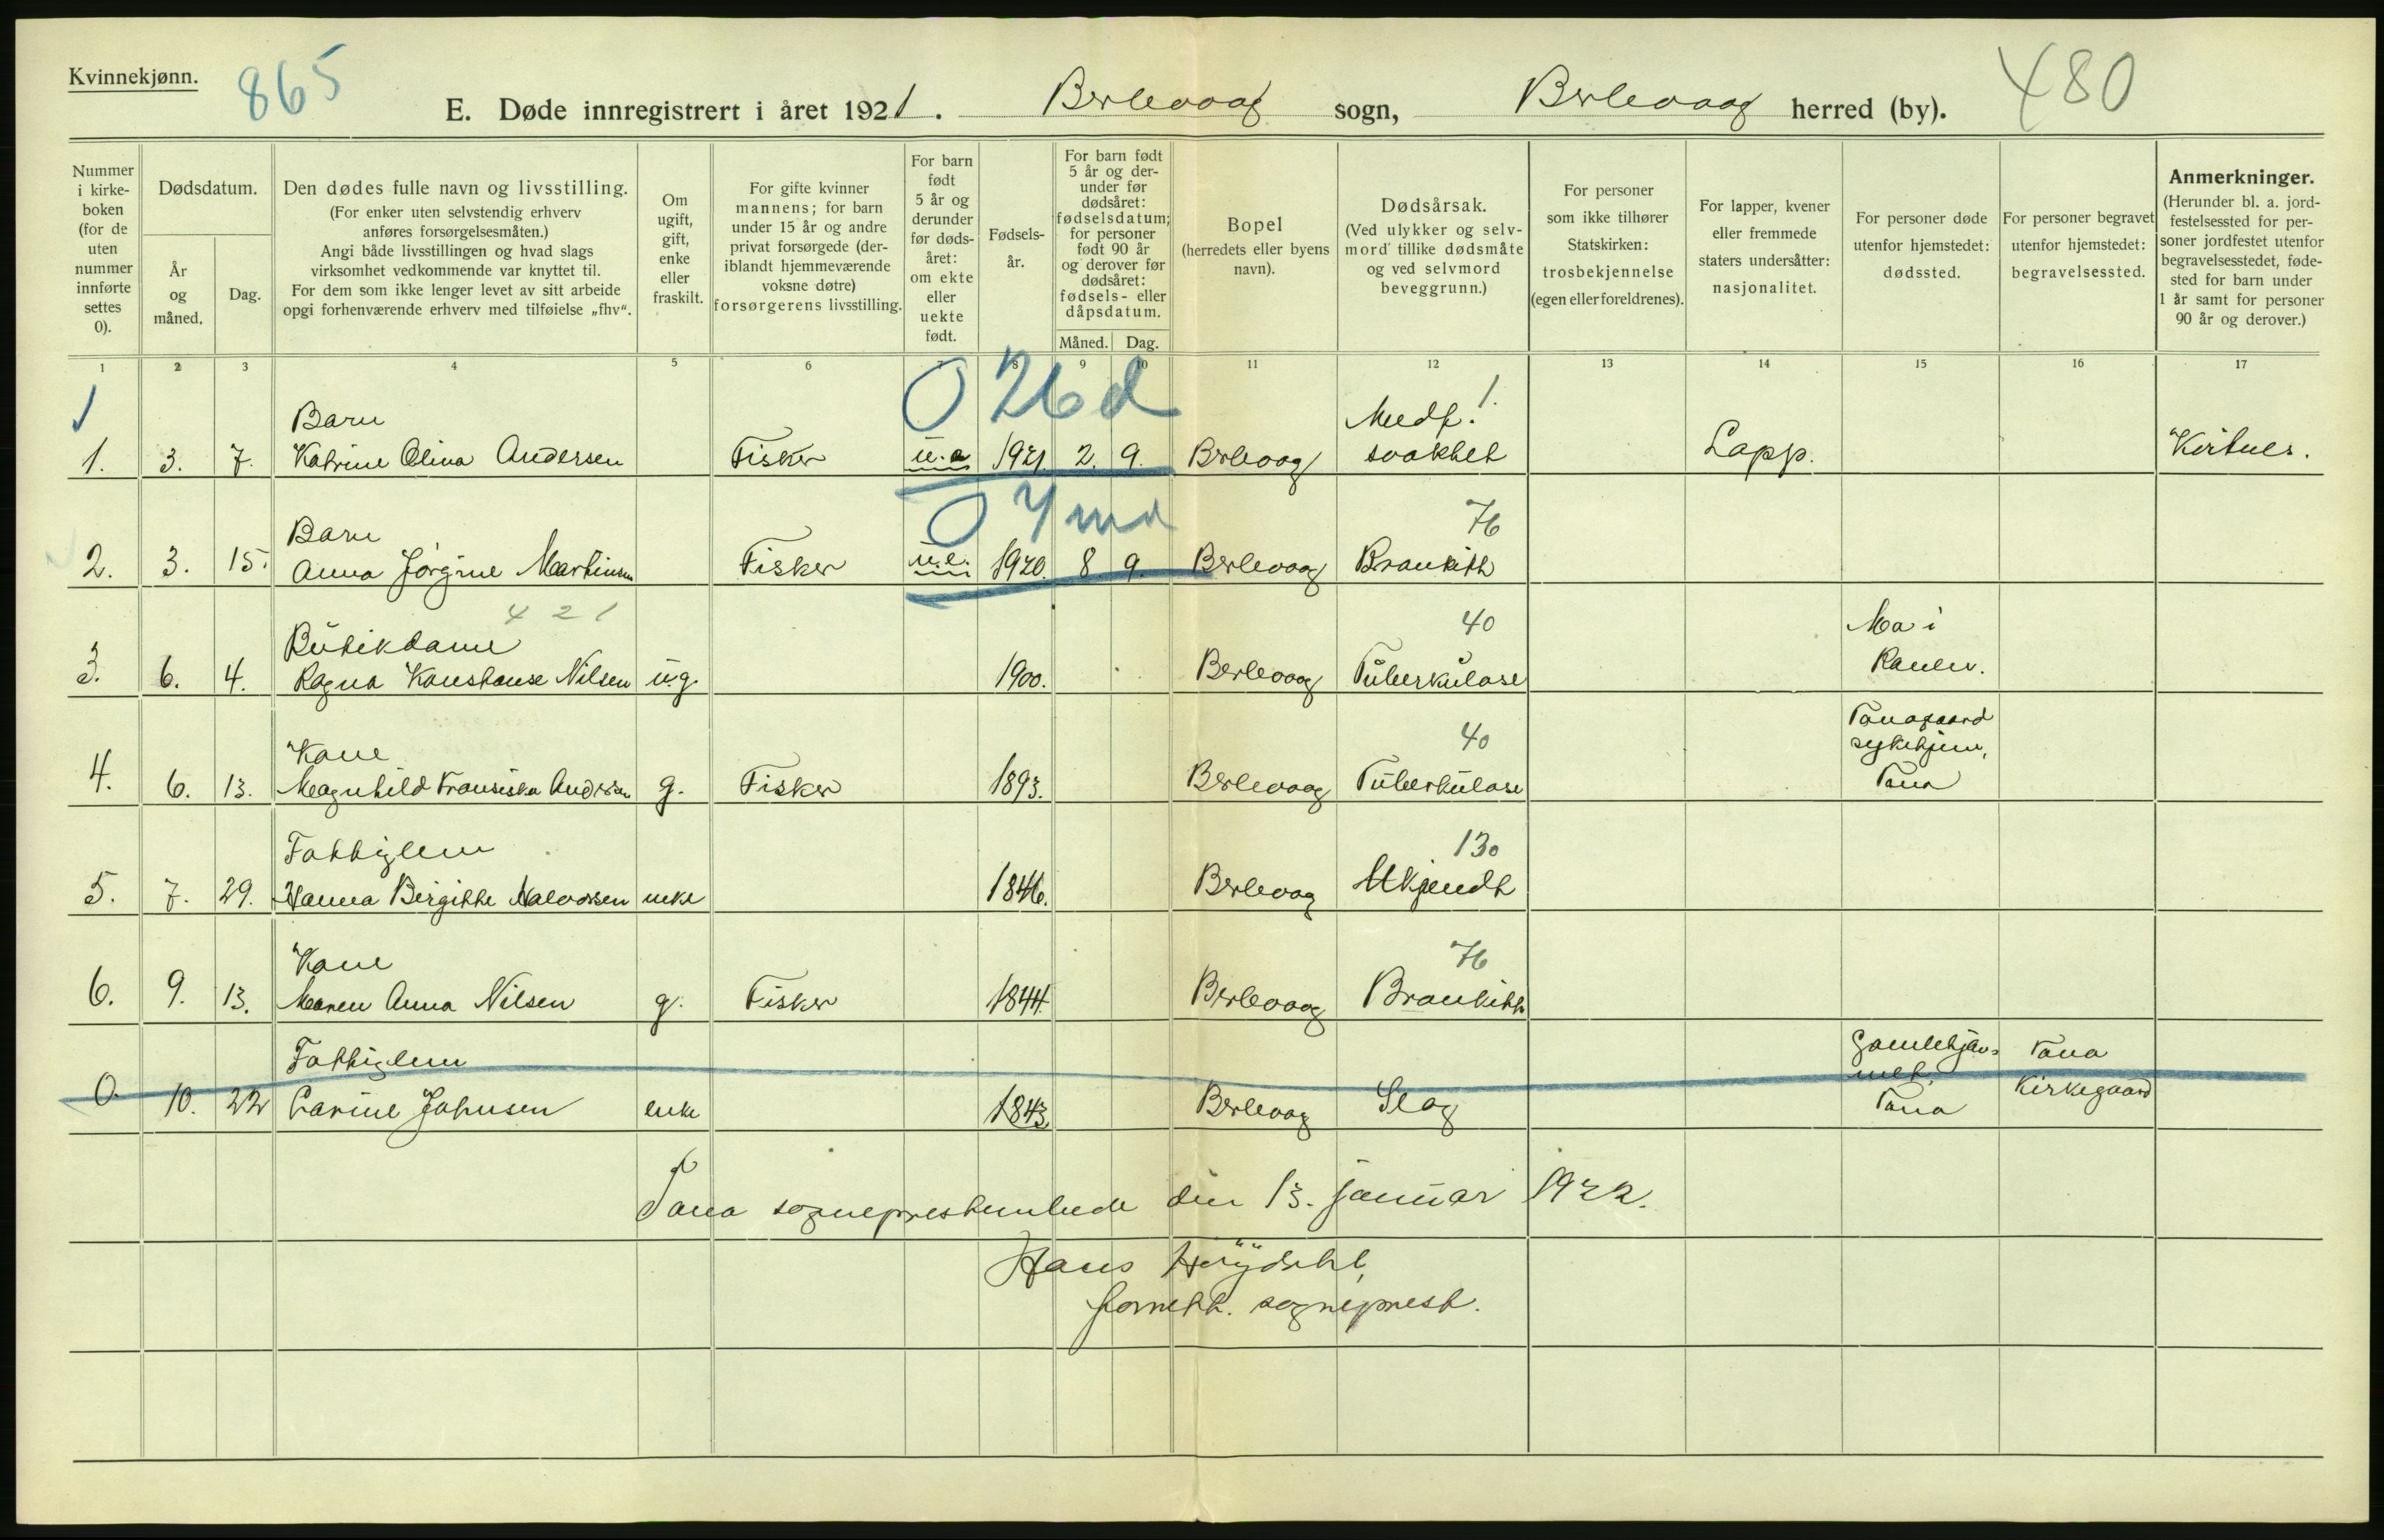 Kvinnekjønn.
865
E. Døde innregistrert i året 1921. Berlevaag sogn, Berlevaag herred (by).
480
Nummer i kirke- boken (for de uten nummer innførte settes 0).
Dødsdatum.
År og måned.
Dag.
Den dødes fulle navn og livsstilling.
(For enker uten selvstendig erhverv anføres forsørgelsesmåten.)
Angi både livsstillingen og hvad slags virksomhet vedkommende var knyttet til.
For dem som ikke lenger levet av sitt arbeide opgi forhenværende erhverv med tilføielse „fhv“.
Om ugift, gift, enke eller fraskilt.
For gifte kvinner mannens; for barn under 15 år og andre privat forsørgede (der- iblandt hjemmeværende voksne døtre) forsørgerens livsstilling.
For barn født 5 år og derunder før døds- året: om ekte eller uekte født.
Fødsels- år.
For barn født 5 år og der- under før dødsåret: fødselsdatum; for personer født 90 år og derover før dødsåret: fødsels- eller dåpsdatum.
Måned. Dag.
Bopel (herredets eller byens navn).
Dødsårsak. (Ved ulykker og selv- mord tillike dødsmåte og ved selvmord beveggrunn.)
For personer som ikke tilhører Statskirken: trosbekjennelse (egen eller foreldrenes).
For lapper, kvener eller fremmede staters undersåtter: nasjonalitet.
For personer døde utenfor hjemstedet: dødssted.
For personer begravet utenfor hjemstedet: begravelsessted.
Anmerkninger. (Herunder bl. a. jord- festelsessted for per- soner jordfestet utenfor begravelsesstedet, føde- sted for barn under 1 år samt for personer 90 år og derover.)
1 2 3 4 5 6 7 8 9 10 11 12 13 14 15 16 17
0 26 d
1.
Barn Medf.
1. 3. 7. Katrine Elina Andersen Fisker u.a 1921 2. 9. Berlevaag svakhet Lapp.
0 7 md
76
Barn
2. 3. 15. Anna Jørgine Martinsen Fisker u.e. 1920. 8. 9. Berlevaag Bronkith
421
40
Butikdame Ma i
3. 6. 4. Ragna Konstanse Nilsen u.g. 1900. Berlevaag Tuberkulose
40
Kone Tanagaard sykehjem, Tana
4. 6. 13. Magnhild Fransiska Andersen g. Fisker 1893. Berlevaag Tuberkulose
130
Fattiglem
5. 7. 29. Hanna Birgitte Halvorsen enke 1846. Berlevaag Ukjendt
76
Kone
6. 9. 13. Maren Anna Nilsen g. Fisker 1844. Berlevaag Bronkitt
Fattiglem Gamlehjem- met, Tana
0. 10. 22 Carine Johnsen enke 1843. Berlevaag Slag Tana Kirkegaard
Tana sogneprestembede den 13. januar 1922.
Hans
sogneprest.